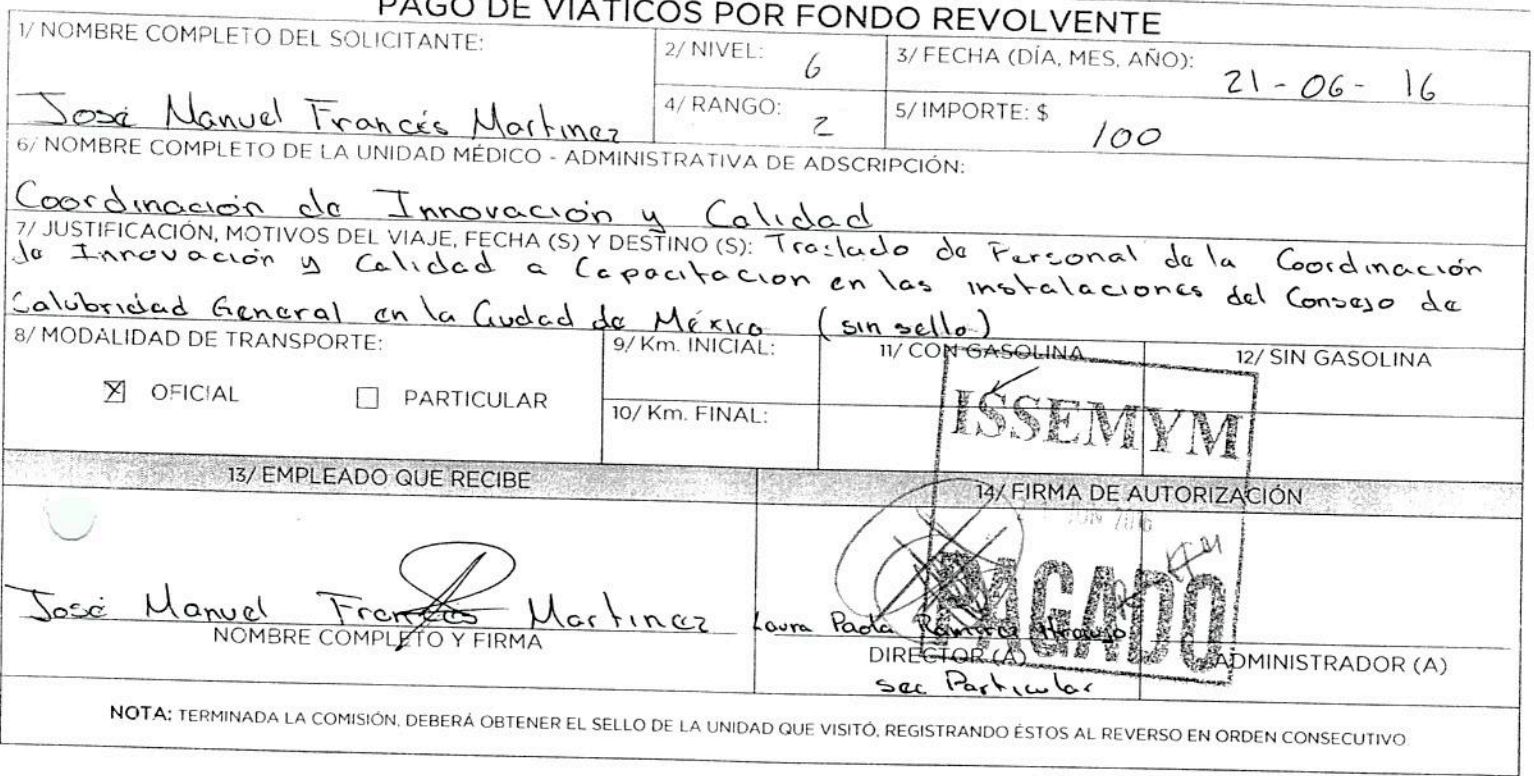 PAGO DE VIÁTICOS POR FONDO REVOLVENTE
1/ NOMBRE COMPLETO DEL SOLICITANTE:
José Manuel Francés Martinez
2/ NIVEL: 6
3/ FECHA (DÍA, MES, AÑO): 21-06-16
4/ RANGO: 2
5/ IMPORTE: $ 100
6/ NOMBRE COMPLETO DE LA UNIDAD MÉDICO - ADMINISTRATIVA DE ADSCRIPCIÓN:
Coordinación de Innovación y Calidad
7/ JUSTIFICACIÓN, MOTIVOS DEL VIAJE, FECHA (S) Y DESTINO (S): Traslado de Personal de la Coordinación
de Innovación y Calidad a Capacitacion en las instalaciones del Consejo de
Salubridad General en la Ciudad de México (sin sello)
8/ MODALIDAD DE TRANSPORTE:
OFICIAL
PARTICULAR
9/ Km. INICIAL:
10/ Km. FINAL:
11/ CON GASOLINA
12/ SIN GASOLINA
ISSEMYM
13/ EMPLEADO QUE RECIBE
14/ FIRMA DE AUTORIZACIÓN
PAGADO
José Manuel Francés Martinez
NOMBRE COMPLETO Y FIRMA
Laura Paola Ramirez Araujo
DIRECTOR (A)
sec Particular
ADMINISTRADOR (A)
NOTA: TERMINADA LA COMISIÓN, DEBERÁ OBTENER EL SELLO DE LA UNIDAD QUE VISITÓ, REGISTRANDO ÉSTOS AL REVERSO EN ORDEN CONSECUTIVO